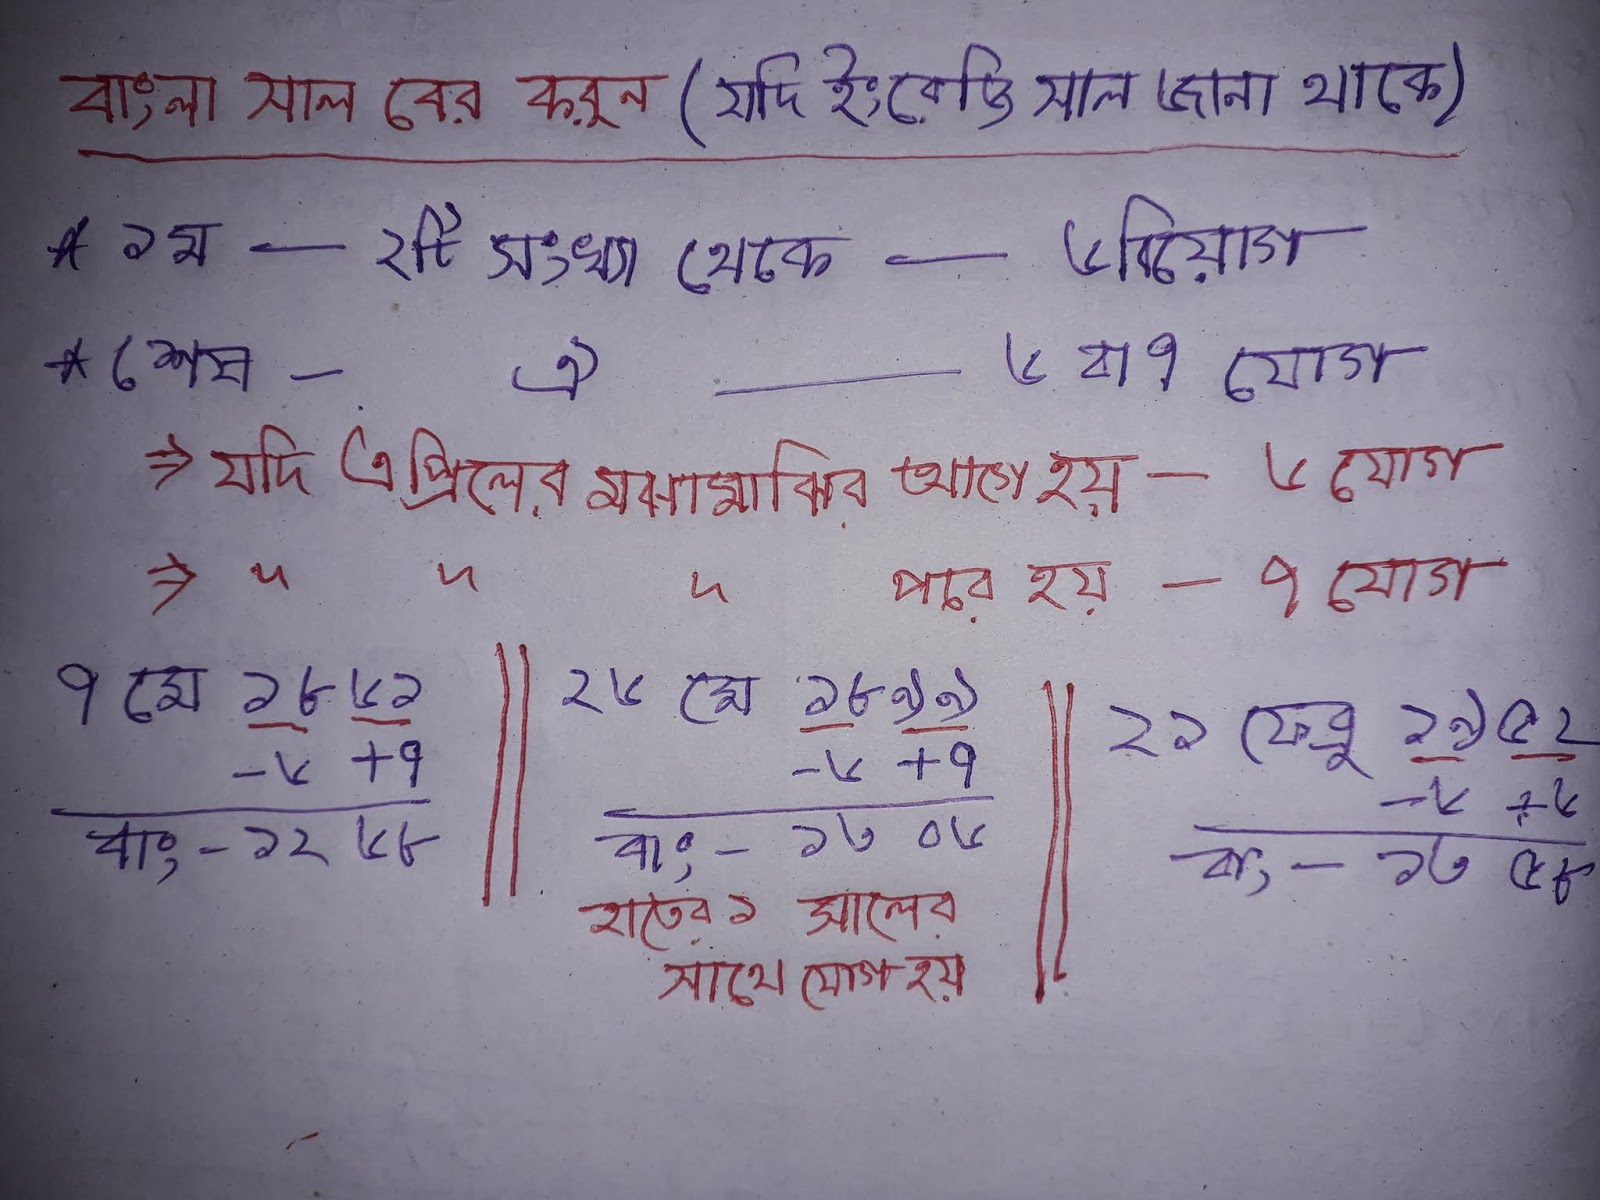 বাংলা সাল বের করুন (যদি ইংরেজি সাল জানা থাকে)
* ১ম — ২টি সংখ্যা থেকে — ৬ বিয়োগ
* শেষ — ঐ — ৬ বা ৭ যোগ
⇒ যদি এপ্রিলের মঝামাঝির আগে হয় — ৬ যোগ
⇒ " " " পরে হয় — ৭ যোগ
৭ মে ১৮৬১
-৬ +৭
বাং - ১২ ৬৮
২৬ মে ১৮৯৯
-৬ +৭
বাং - ১৩ ০৬
হাতের ১ সালের
সাথে যোগ হয়
২১ ফেব্রু ১৯৫২
-৬ +৬
বাং - ১৩ ৫৮